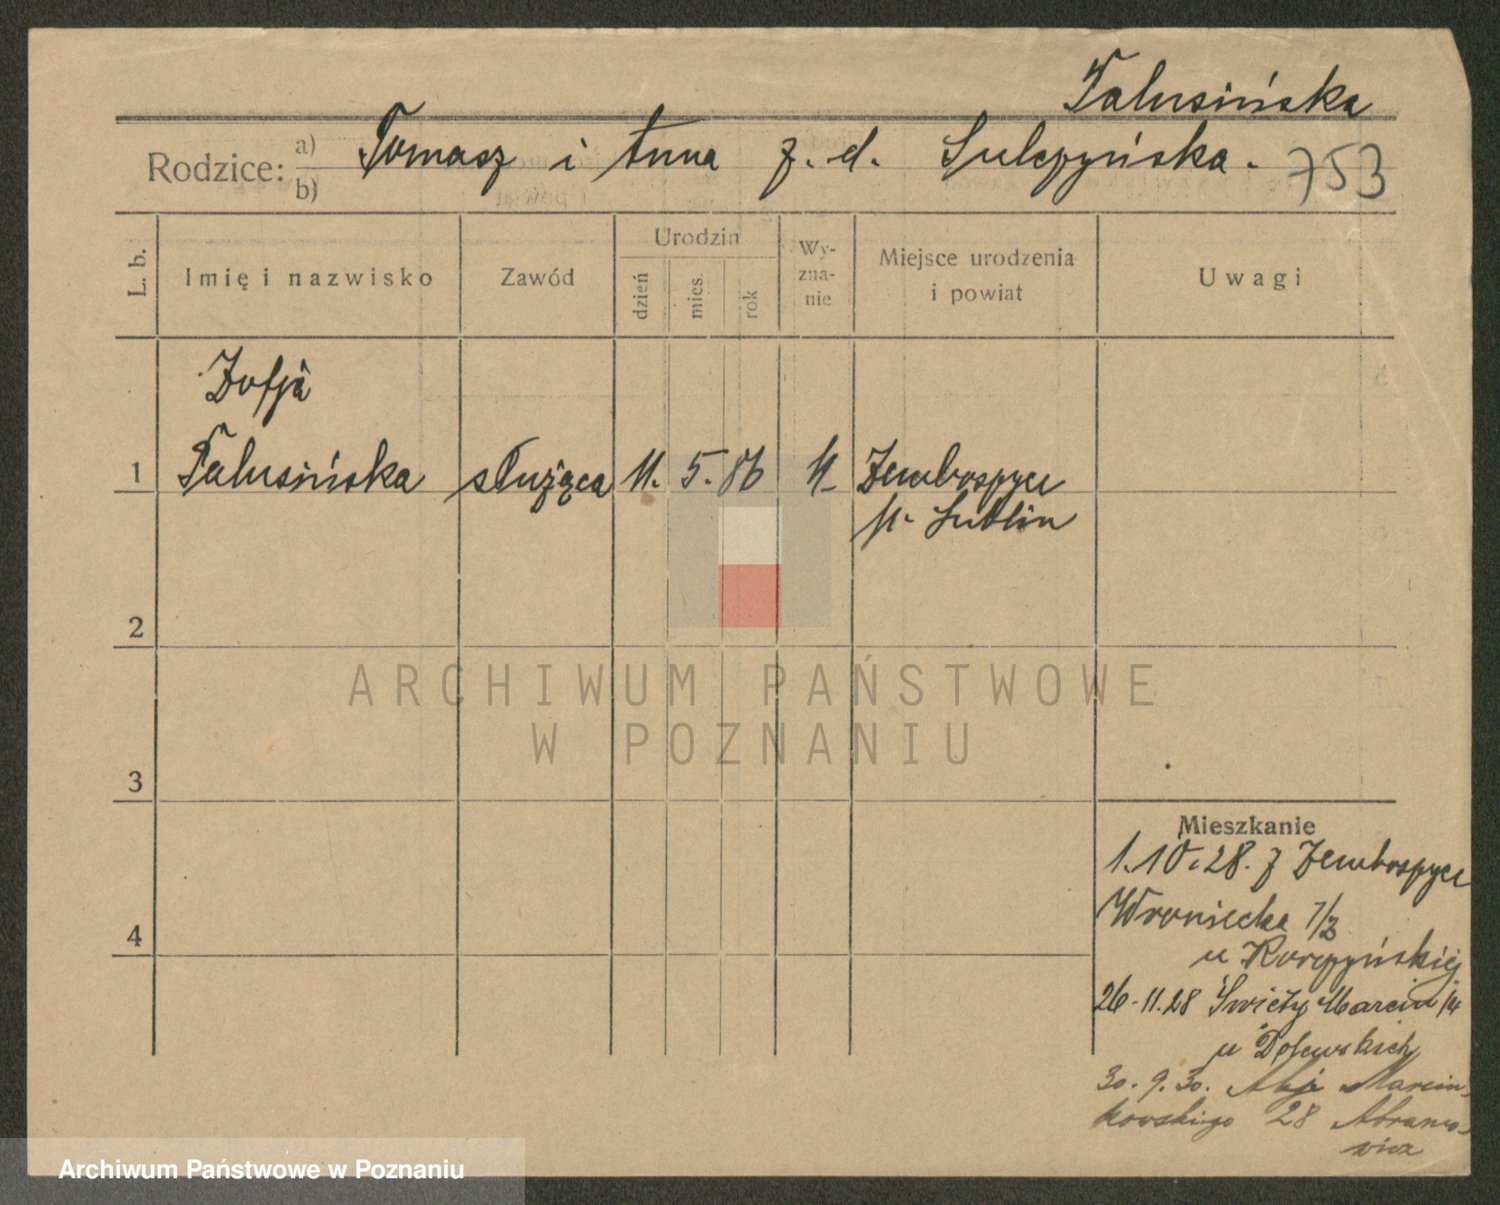 Talusińska
Rodzice: a) b) Tomasz i Anna z. d. Sulczyńska. 753
L. b. Imię i nazwisko Zawód Urodzin dzień mies. rok Wy-zna-nie Miejsce urodzenia i powiat Uwagi
Zofja
1 Talusińska służąca 11. 5. 86 Zemborzyce
p. Lublin
2
3
4
Mieszkanie
1.10.28. z Zemborzyce
Wroniecka
u
26.11.28 Święty Marcin
u
30. 9. 30. Marcin-
kowskiego 28 Abramo-
wicz
ARCHIWUM PAŃSTWOWE
W POZNANIU
Archiwum Państwowe w Poznaniu